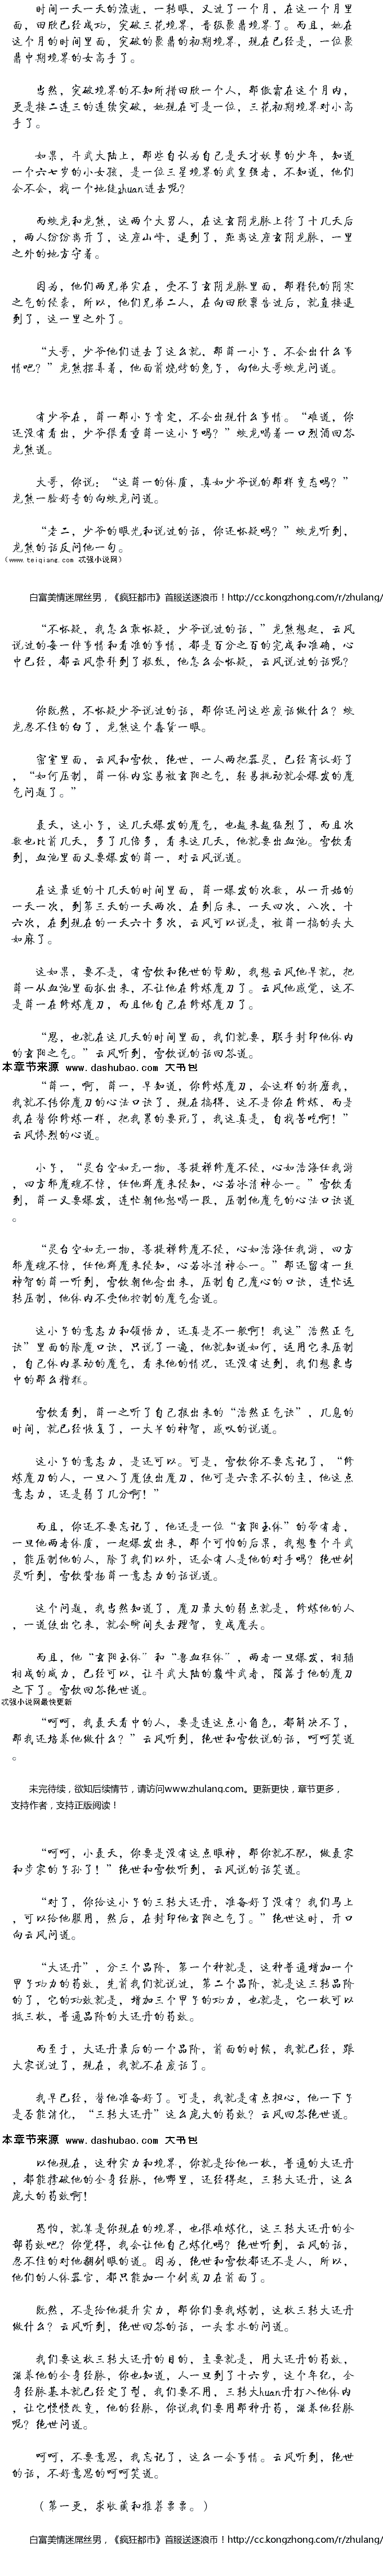 时间一天一天的流逝，一转眼，又过了一个月，在这一个月里
面，田欣已经成功，突破三花境界，晋级聚鼎境界了。而且，她在
这个月的时间里面，突破的聚鼎的初期境界，现在已经是，一位聚
鼎中期境界的女高手了。
当然，突破境界的不知所措田欣一个人，那傲霜在这个月内，
更是接二连三的连续突破，她现在可是一位，三花初期境界对小高
手了。
如果，斗武大陆上，那些自认为自己是天才妖孽的少年，知道
一个六七岁的小女孩，是一位三星境界的武皇强者，不知道，他们
会不会，找一个地缝zhuan进去呢？
而蛟龙和龙熊，这两个大男人，在这玄阴龙脉上待了十几天后
，两人纷纷离开了，这座山峰，退到了，距离这座玄阴龙脉，一里
之外的地方守着。
因为，他们两兄弟实在，受不了玄阴龙脉里面，那精纯的阴寒
之气的侵袭，所以，他们兄弟二人，在向田欣禀告过后，就直接退
到了，这一里之外了。
“大哥，少爷他们进去了这么就，那薛一小子，不会出什么事
情吧？”龙熊摆弄着，他面前烧烤的兔子，向他大哥蛟龙问道。
有少爷在，薛一那小子肯定，不会出现什么事情。“难道，你
还没有看出，少爷很看重薛一这小子吗？”蛟龙喝着一口烈酒回答
龙熊道。
大哥，你说：“这薛一的体质，真如少爷说的那样变态吗？”
龙熊一脸好奇的向蛟龙问道。
“老二，少爷的眼光和说过的话，你还怀疑吗？”蛟龙听到，
龙熊的话反问他一句。
（www.teiqiang.com 忒强小说网）
白富美情迷屌丝男，《疯狂都市》首服送逐浪币！http://cc.kongzhong.com/r/zhulang/
“不怀疑，我怎么敢怀疑，少爷说过的话，”龙熊想起，云风
说过的每一件事情和看准的事情，都是百分之百的完成和准确，心
中已经，都云风崇拜到了极致，他怎么会怀疑，云风说过的话呢？
你既然，不怀疑少爷说过的话，那你还问这些废话做什么？蛟
龙忍不住的白了，龙熊这个蠢货一眼。
密室里面，云风和雪饮，绝世，一人两把器灵，已经商议好了
，“如何压制，薛一体内容易被玄阳之气，轻易挑动就会爆发的魔
气问题了。”
聂天，这小子，这几天爆发的魔气，也越来越猛烈了，而且次
数也比前几天，多了几倍多，看来这几天，他就要出血池。雪饮看
到，血池里面又要爆发的薛一，对云风说道。
在这最近的十几天的时间里面，薛一爆发的次数，从一开始的
一天一次，到第三天的一天两次，在到后来，一天四次，八次，十
六次，在到现在的一天六十多次，云风可以说是，被薛一搞的头大
如麻了。
这如果，要不是，有雪饮和绝世的帮助，我想云风他早就，把
薛一从血池里面抓出来，不让他在修炼魔刀了。云风他感觉，这不
是薛一在修炼魔刀，而且他自己在修炼魔刀了。
“恩，也就在这几天的时间里面，我们就要，联手封印他体内
的玄阳之气。”云风听到，雪饮说的话回答道。
本章节来源 www.dashubao.com 大书包
“薛一，啊，薛一，早知道，你修炼魔刀，会这样的折磨我，
我就不传你魔刀的心法口诀了，现在搞得，这不是你在修炼，而是
我在替你修炼一样，把我累的要死了，我这真是，自找苦吃啊！”
云风惨烈的心道。
小子，“灵台空如无一物，菩提禅修魔不侵，心如浩海任我游
，四方邪魔魂不惊，任他群魔来侵知，心若冰清神合一。”雪饮看
到，薛一又要爆发，连忙朝他怒喝一段，压制他魔气的心法口诀道
。
“灵台空如无一物，菩提禅修魔不侵，心如浩海任我游，四方
邪魔魂不惊，任他群魔来侵知，心若冰清神合一。”那还留有一丝
神智的薛一听到，雪饮朝他念出来，压制自己魔心的口诀，连忙运
转压制，他体内不受他控制的魔气念道。
这小子的意志力和领悟力，还真是不一般啊！我这“浩然正气
诀”里面的除魔口诀，只说了一遍，他就知道如何，运用它来压制
，自己体内暴动的魔气，看来他的情况，还没有达到，我们想象当
中的那么糟糕。
雪饮看到，薛一之听了自己报出来的“浩然正气诀”，几息的
时间，就已经恢复了，一大半的神智，感叹的说道。
这小子的意志力，是还可以。可是，雪饮你不要忘记了，“修
炼魔刀的人，一旦入了魔便出魔刀，他可是六亲不认的主，他这点
意志力，还是弱了几分啊！”
而且，你还不要忘记了，他还是一位“玄阳玉体”的带有者，
一旦他两者体质，一起爆发出来，那个可怕的后果，我想整个斗武
，能压制他的人，除了我们以外，还会有人是他的对手吗？绝世剑
灵听到，雪饮赞扬薛一意志力的话说道。
这个问题，我当然知道了，魔刀最大的弱点就是，修炼他的人
，一道使出它来，就会瞬间失去理智，变成魔头。
而且，他“玄阳玉体”和“兽血狂体”，两者一旦爆发，相辅
相成的威力，已经可以，让斗武大陆的巅峰武者，陨落于他的魔刀
之下了。雪饮回答绝世道。
忒强小说网最快更新
“呵呵，我聂天看中的人，要是连这点小角色，都解决不了，
那我还培养他做什么？”云风听到，绝世和雪饮说的话，呵呵笑道
。
未完待续，欲知后续情节，请访问www.zhulang.com。更新更快，章节更多，
支持作者，支持正版阅读！
“呵呵，小聂天，你要是没有这点眼神，那你就不配，做聂家
和步家的子孙了！”绝世和雪饮听到，云风说的话笑道。
“对了，你给这小子的三转大还丹，准备好了没有？我们马上
，可以给他服用，然后，在封印他玄阳之气了。”绝世这时，开口
向云风问道。
“大还丹”，分三个品阶，第一个种就是，这种普通增加一个
甲子功力的药效，先前我们就说过，第二个品阶，就是这三转品阶
的了，它的功效就是，增加三个甲子的功力，也就是，它一枚可以
抵三枚，普通品阶的大还丹的药效。
而至于，大还丹最后的一个品阶，前面的时候，我就已经，跟
大家说过了，现在，我就不在废话了。
我早已经，替他准备好了。可是，我就是有点担心，他一下子
是否能消化，“三转大还丹”这么庞大的药效？云风回答绝世道。
本章节来源 www.dashubao.com 大书包
以他现在，这种实力和境界，你就是给他一枚，普通的大还丹
，都能撑破他的全身经脉，他哪里，还经得起，三转大还丹，这么
庞大的药效啊！
恐怕，就算是你现在的境界，也很难炼化，这三转大还丹的全
部药效吧？你觉得，我会让他自己炼化吗？绝世听到，云风的话，
忍不住的对他翻剑眼的道。因为，绝世和雪饮都还不是人，所以，
他们的人体器官，都只能加一个剑或刀在前面了。
既然，不是给他提升实力，那你们要我炼制，这枚三转大还丹
做什么？云风听到，绝世回答的话，一头雾水的问道。
我们要这枚三转大还丹的目的，主要就是，用大还丹的药效，
滋养他的全身经脉，你也知道，人一旦到了十六岁，这个年纪，全
身经脉基本就已经定了型，我们要不用，三转大huan丹打入他体内
，让它慢慢改变，他的经脉，你说我们要用那种丹药，滋养他经脉
呢？绝世问道。
呵呵，不要意思，我忘记了，这么一会事情。云风听到，绝世
的话，不好意思的呵呵笑道。
（第一更，求收藏和推荐票票。）
白富美情迷屌丝男，《疯狂都市》首服送逐浪币！http://cc.kongzhong.com/r/zhulang/